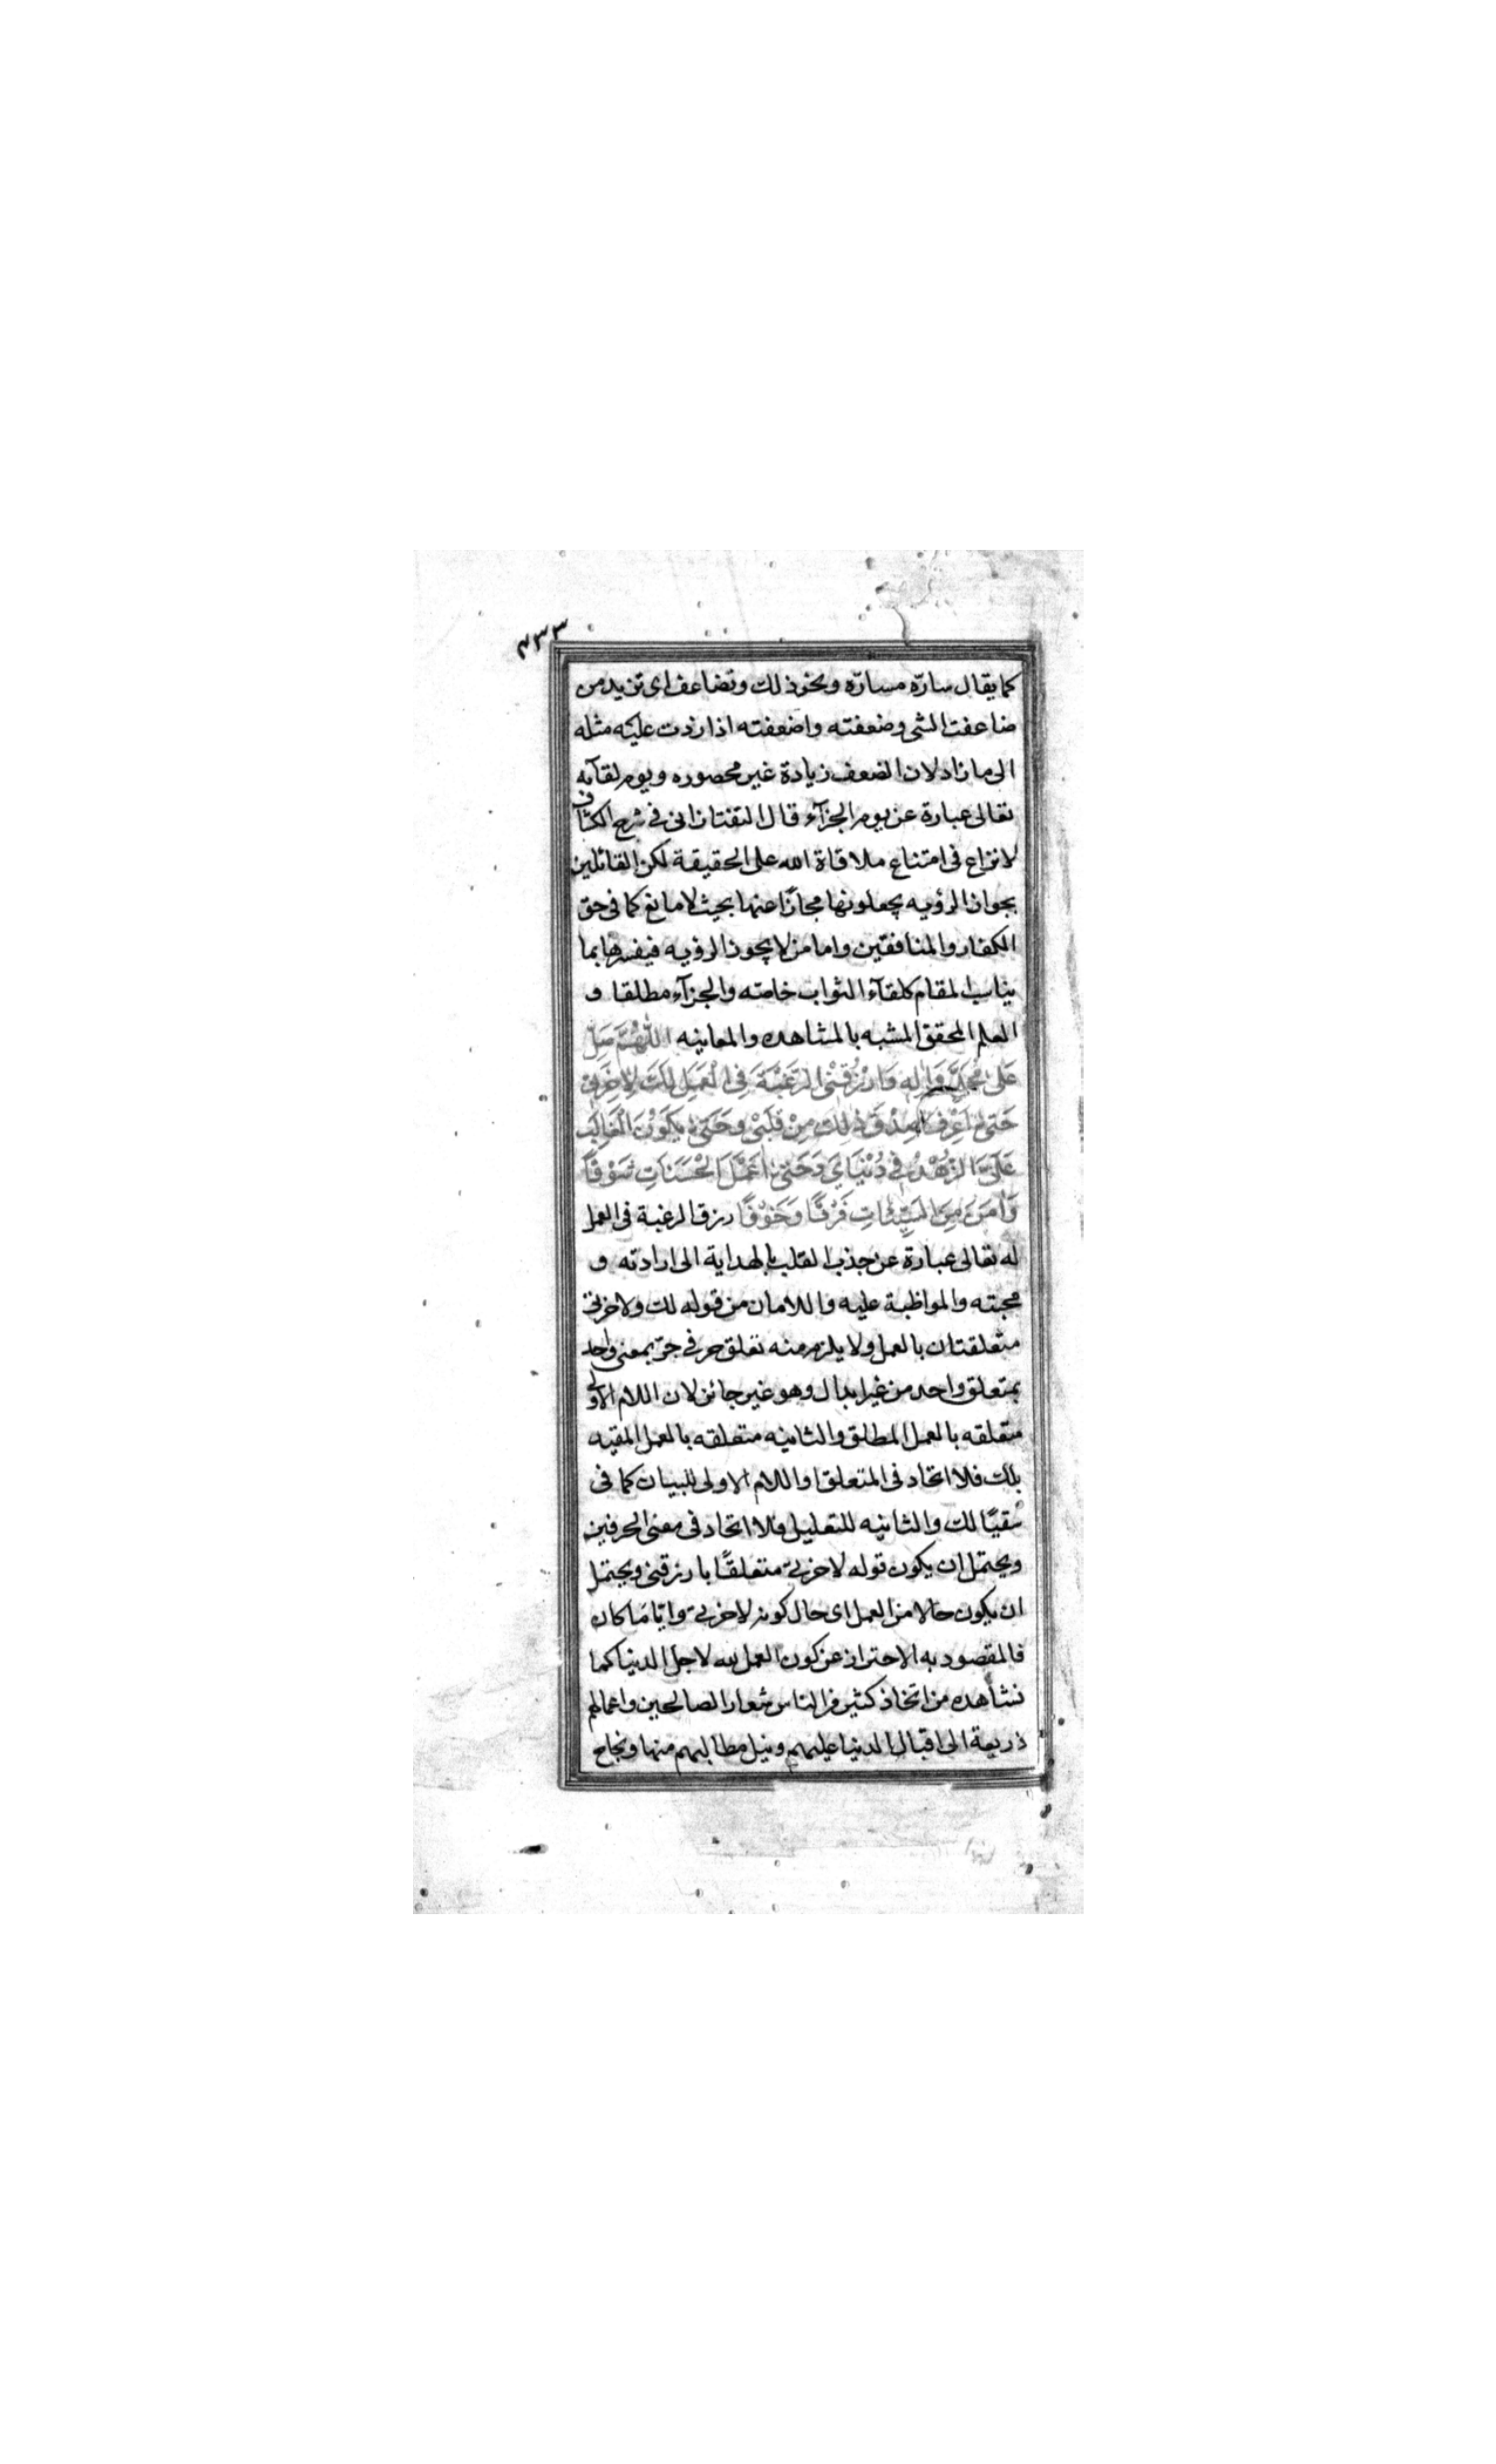 ٢٣٣
كما يقال سارّه مسارّه ونحو ذلك وتضاعف اى تزيد من
ضاعفت الشى وضعفته واضعفته اذا زدت عليه مثله
الى ما زاد لان الضعف زيادة غير محصوره ويوم لقآئه
تعالى عبارة عن يوم الجزآء قال التفتازانى فى شرح الكشاف
لا نزاع فى امتناع ملاقاة الله على الحقيقة لكن القائلين
بجواز الرؤيه يجعلونها مجازًا عنها بحيث لا مانع كما فى حق
الكفار والمنافقين واما من لا يجوز الرؤيه فيفسرها بما
يناسب المقام كلقآء الثواب خاصه والجزآء مطلقا و
العلم المحقق المشبه بالمشاهده والمعاينه اللّٰهُمَّ صَلِّ
عَلىٰ مُحَمَّدٍ وَاٰلِهِ وَارْزُقْنِى الرَّغْبَةَ فِى الْعَمَلِ لَكَ لِاٰخِرَتِى
حَتّىٰ اَعْرِفَ صِدْقَ ذٰلِكَ مِنْ قَلْبِىْ وَحَتّىٰ يَكُوْنَ الْغَالِبُ
عَلَىَّ الزُّهْدُ فِى دُنْيَاىَ وَحَتّىٰ اَعْمَلَ الْحَسَنَاتِ شَوْقًا
وَاٰمَنَ مِنَ السَّيِّئَاتِ فَرَقًا وَخَوْفًا رزق الرغبة فى العمل
له تعالى عبارة عن جذب القلب بالهداية الى ارادته و
محبته والمواظبة عليه واللامان من قوله لك ولاخرتى
متعلقتان بالعمل ولا يلزم منه تعلق حرفى جرّ بمعنى واحد
بمتعلق واحد من غير ابدال وهو غير جائز لان اللام الاولى
متعلقه بالعمل المطلق والثانيه متعلقه بالعمل المقيد
بلك فلا اتحاد فى المتعلق او اللام الاولى للبيان كما فى
سُقيًا لك والثانيه للتعليل فلا اتحاد فى معنى الحرفين
ويحتمل ان يكون قوله لاخرتى متعلقًا بارزقنى ويحتمل
ان يكون حالا من العمل اى حال كونه لاخرتى وايّا مّا كان
فالمقصود به الاحتراز عن كون العمل لله لاجل الدنيا كما
نشاهده من اتخاذ كثير من الناس شعار الصالحين واعمالهم
ذريعة الى اقبال الدنيا عليهم ونيل مطالبهم منها ونجاح